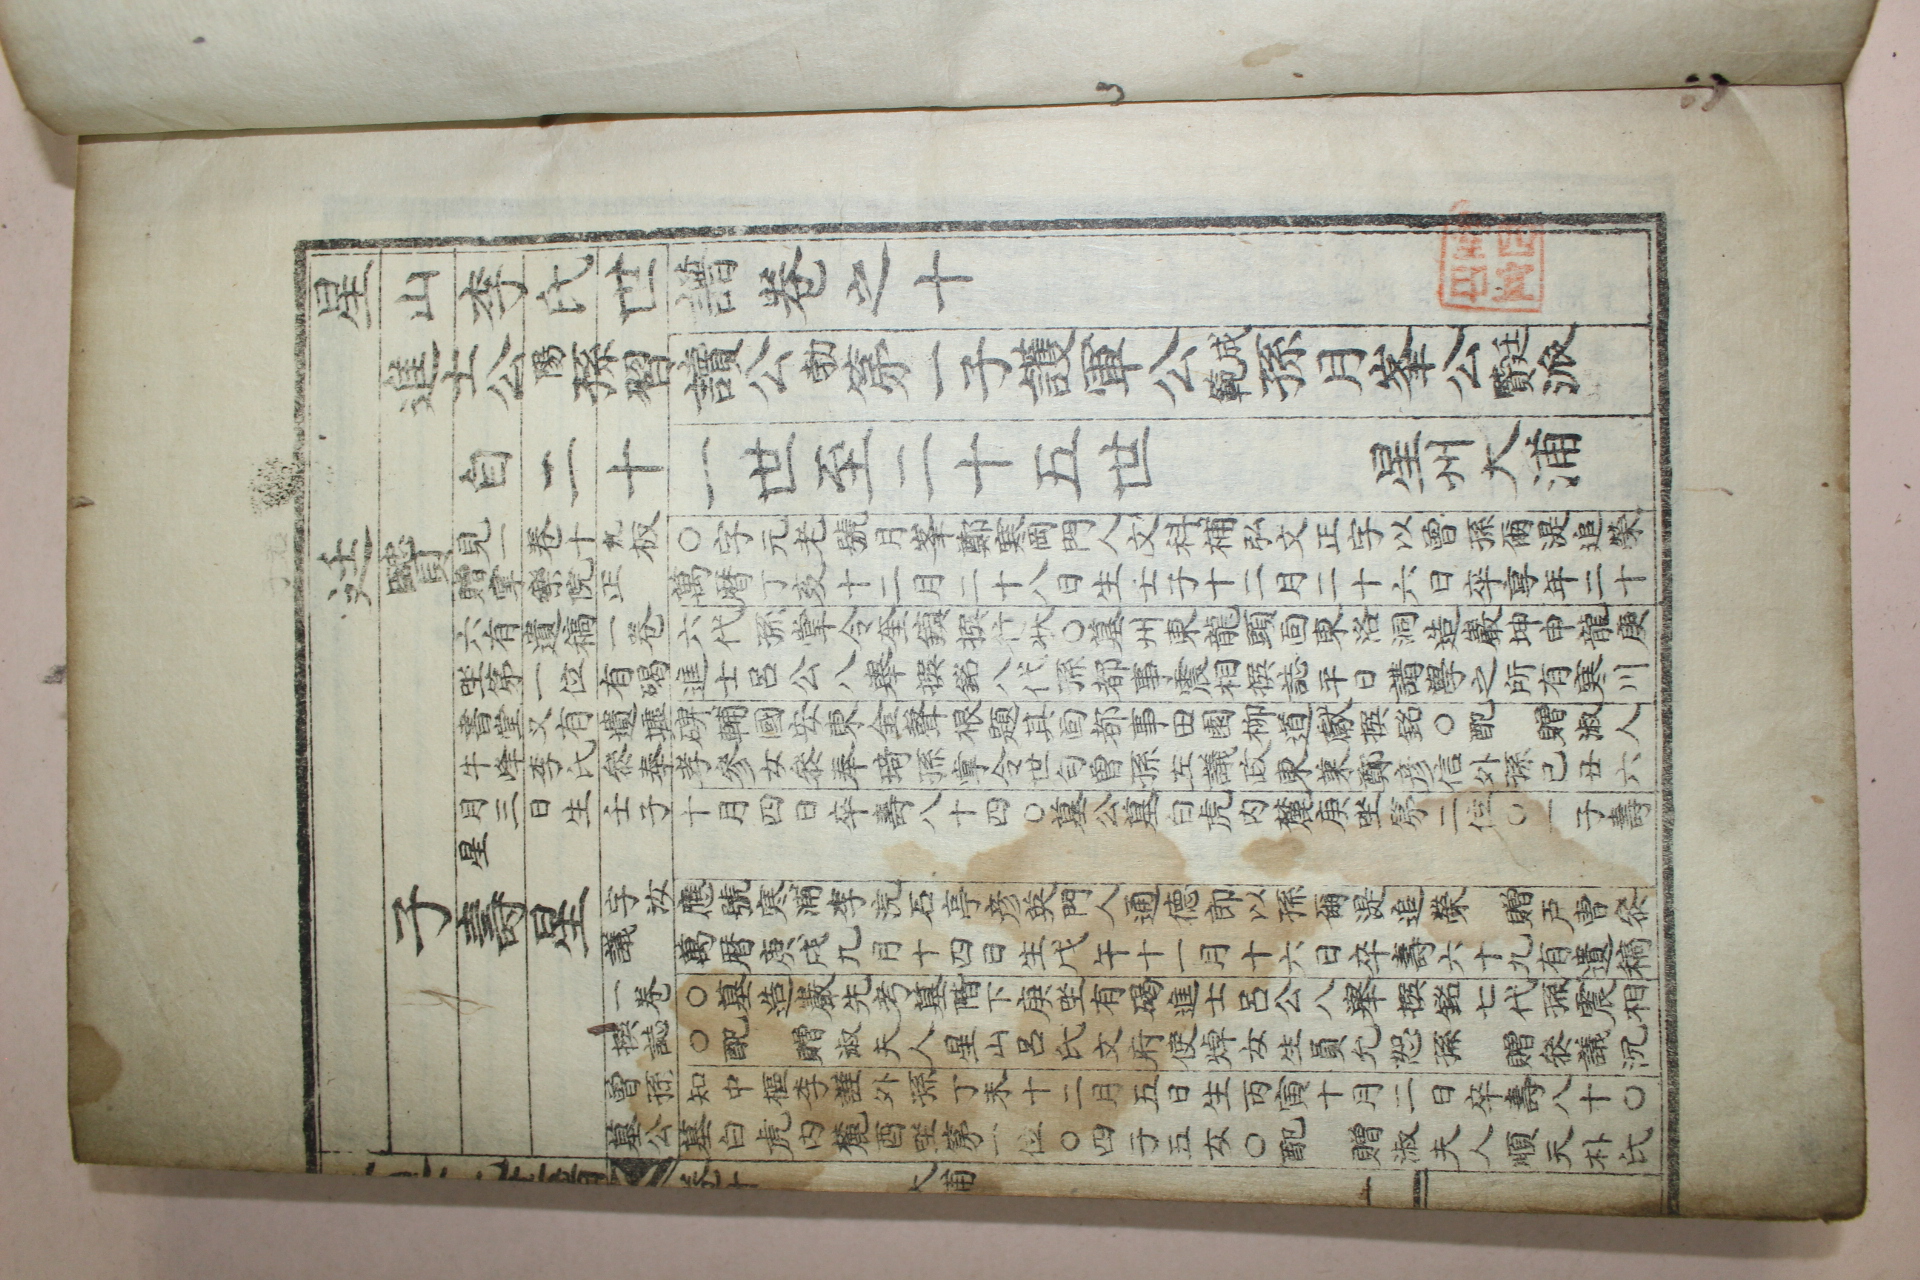 星山李氏世譜卷之十
進士公陽孫習讀公勃第一子護軍公成範孫月峯公廷賢派
自二十一世至二十五世 星州大浦
廷賢
見一卷十九板〇字元老號月峯鄭寒岡門人文科補弘文正字以曾孫爾湜追榮
贈掌樂院正萬曆丁亥十二月二十八日生壬子十二月二十六日卒享年二十
六有遺稿一卷六代孫掌令奎鎮撰行狀〇墓州東龍頭面東洛洞造巖坤申龍庚
坐第一位有碣進士呂公八擧撰銘八代孫都事震相撰誌平日講學之所有寒川
書堂又有遺墟碑輔國安東金聲根題其面都事田園柳道獻撰銘〇配 贈淑人
牛峰李氏參奉孝參女參奉琦孫掌令世匀曾孫左議政東萊鄭彦信外孫己丑六
月三日生壬子十月四日卒壽八十四〇墓公墓白虎內麓庚坐第二位〇一子壽
星
子壽星
字汝應號寒浦李浣石亭彦英門人通德郎以孫爾湜追榮 贈戶曹參
議萬曆庚戌九月十四日生戊午十一月十六日卒壽六十九有遺稿
一卷〇墓造巖先考墓階下庚坐有碣進士呂公八擧撰銘七代孫震相
撰誌〇配 贈淑夫人星山呂氏文府使焯女生員允恕孫 贈參議沉
曾孫知中樞李謹外孫丁未十二月五日生丙寅十月二日卒壽八十〇
墓公墓白虎內麓酉坐第一位〇四子五女〇配 贈淑夫人順天朴氏
卷十 大浦 一